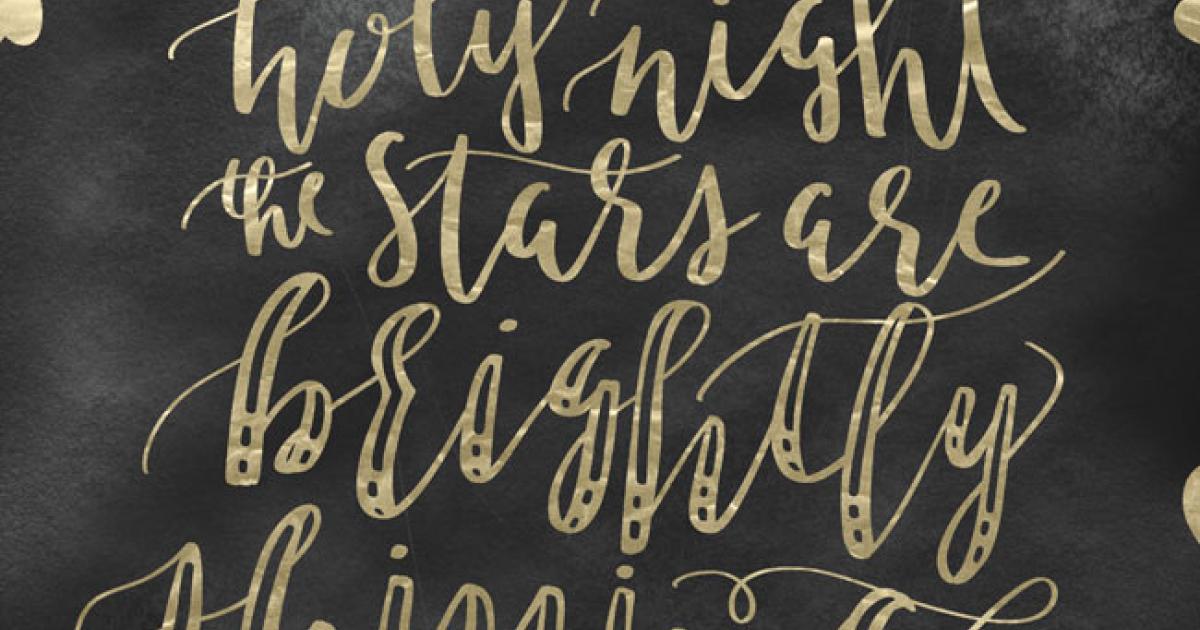 holy night
the stars are
brightly